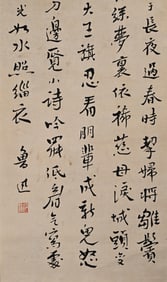 于長夜過春時挈婦將雛鬢
絲夢裏依稀慈母淚城頭变
大王旗忍看朋輩成新鬼怒
刀邊覓小詩吟罷低眉無寫處
光如水照緇衣
魯迅